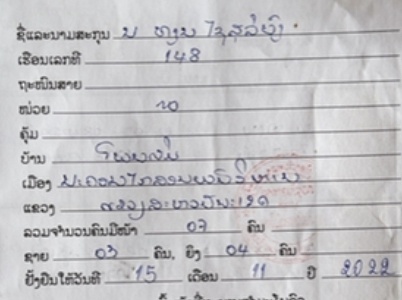 ຊື່ແລະນາມສະກຸນ ນ
ເຮືອນເລກທີ 148
ຖະໜົນສາຍ
ໜ່ວຍ 10
ຄຸ້ມ
ບ້ານ ໂພນສິມ
ເມືອງ ນະຄອນໄກສອນພົມວິຫານ
ແຂວງ ແຂວງສະຫວັນນະເຂດ
ລວມຈຳນວນຄົນມີໜ້າ 07 ຄົນ
ຊາຍ 03 ຄົນ, ຍິງ 04 ຄົນ
ຢັ້ງຢືນໃຫ້ວັນທີ 15 ເດືອນ 11 ປີ 2022